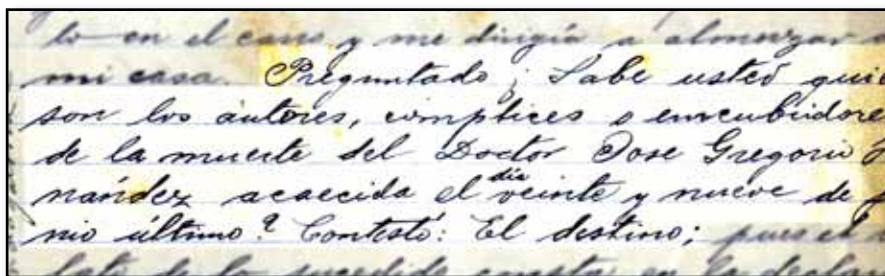 lo en el carro y me dirigía a almorzar
mi casa. Preguntado ¿ Sabe usted quie
son los autores, cómplices o encubridore
de la muerte del Doctor Jose Gregorio
nández acaecida el día veinte y nueve de
nio último? Contestó: El destino; pues el